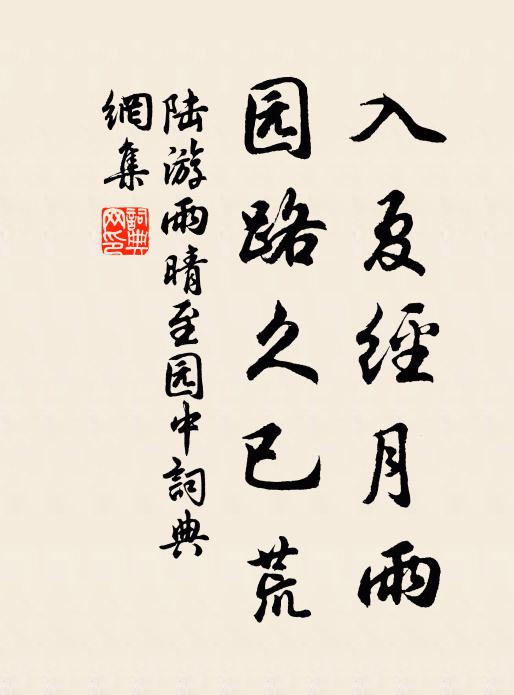 入夏經月雨
园路久已荒
陆游雨晴至园中詞典
網集
詞典
网印